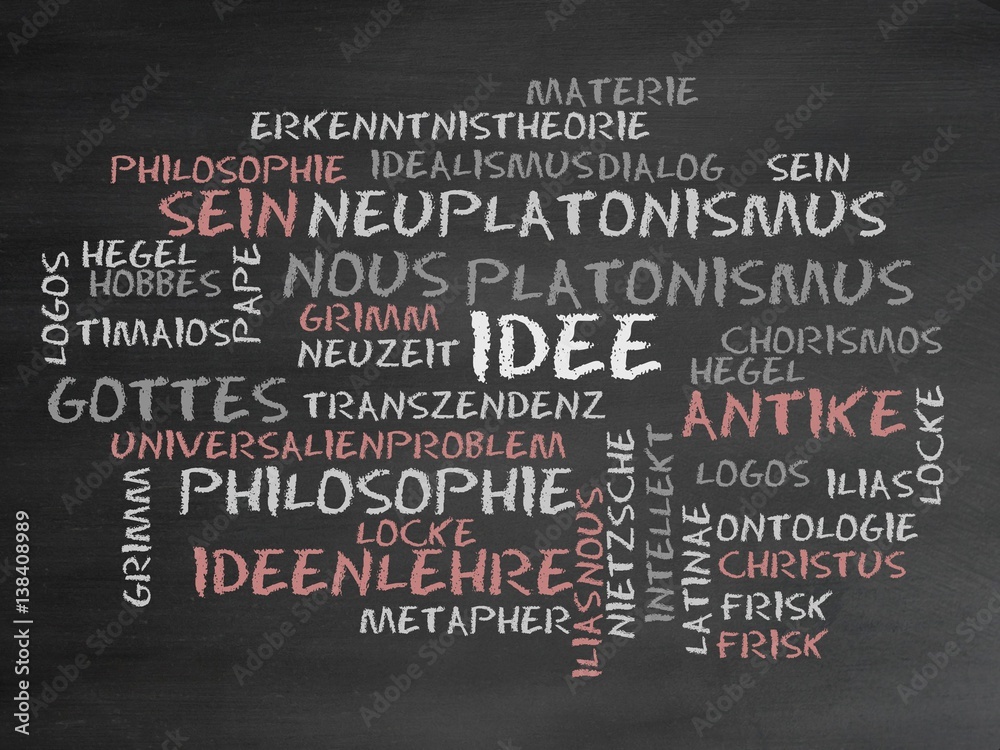 MATERIE
ERKENNTNISTHEORIE
PHILOSOPHIE IDEALISMUSDIALOG SEIN
SEIN NEUPLATONISMUS
LOGOS
HEGEL
HOBBES
PAPE
NOUS PLATONISMUS
TIMAIOS
GRIMM
NEUZEIT
IDEE
CHORISMOS
HEGEL
GOTTES TRANSZENDENZ
ANTIKE
LOCKE
UNIVERSALIENPROBLEM
PHILOSOPHIE
LOGOS
ILIAS
GRIMM
LOCKE
IDEENLEHRE
METAPHER
ILIASNOUS
NIETZSCHE
INTELLEKT
LATINAE
ONTOLOGIE
CHRISTUS
FRISK
FRISK
Adobe Stock | #138408989